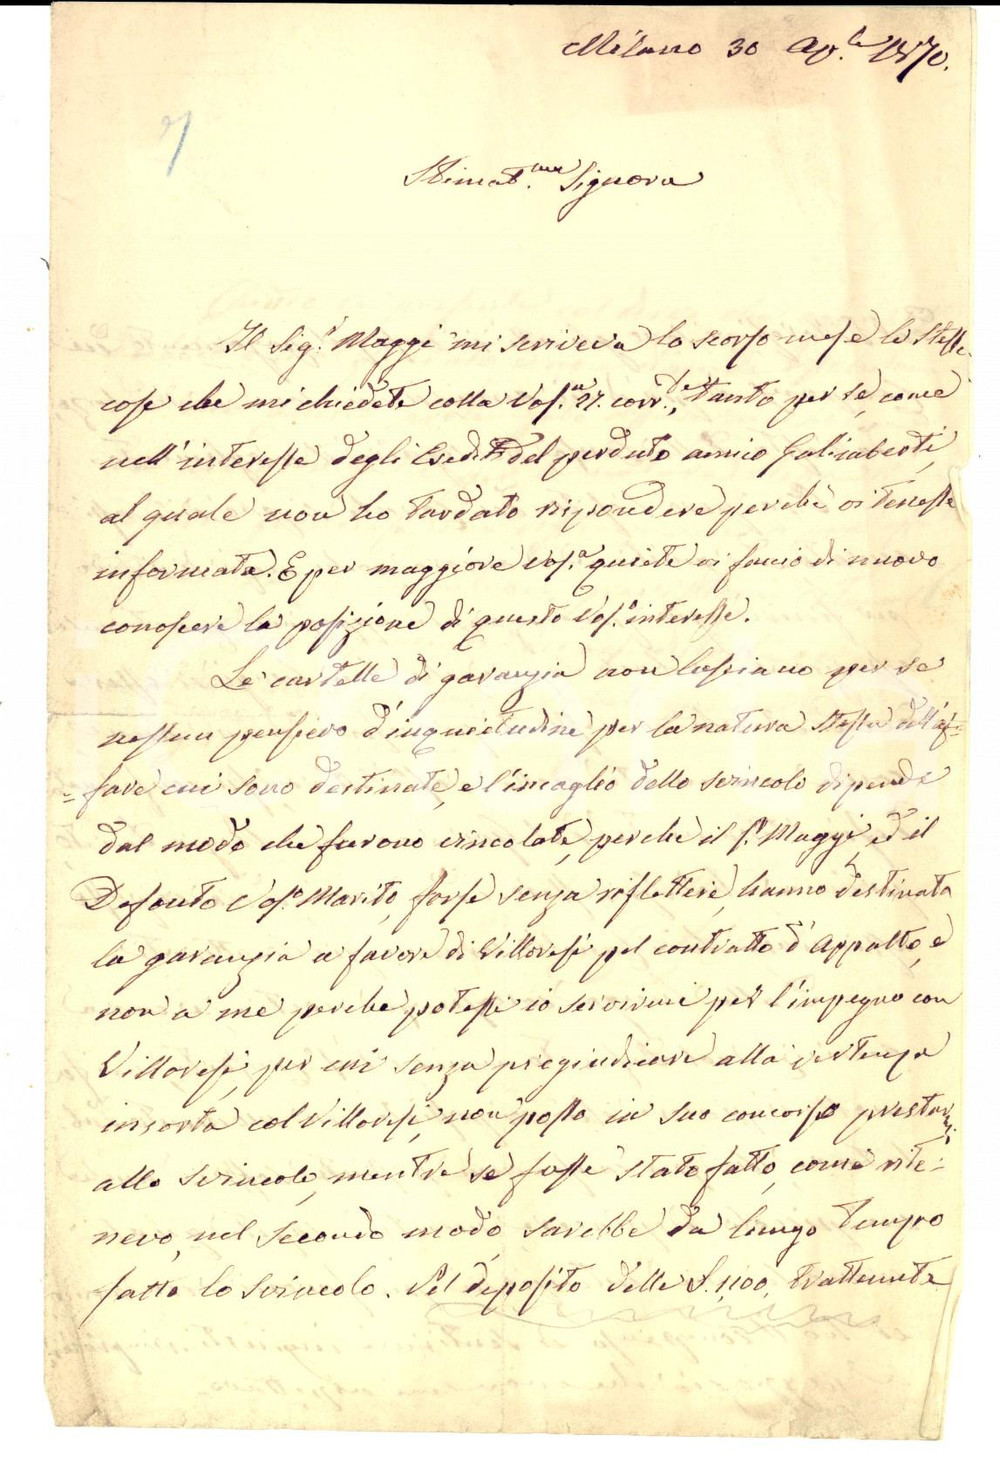 Milano 30 Ap.le 1870.
Stimat.ma Signora
Il Sig.r Maggi mi scriveva lo scorso mese le stesse
cose che mi chiedete colla Vos.a 27. corr.te, tanto per sè, come
nell'interesse degli Eredi del perduto amico Galimberti,
al quale non ho tardato rispondere perchè vi tenesse
informata. E per maggiore Vos.a quiete vi faccio di nuovo
conoscere la posizione di questo Vos.o interesse.
Le cartelle di garanzia non lasciano per se
nessun pensiero d'inquietudine per la natura stessa dell'af=
=fare cui sono destinate, e l'incaglio dello svincolo dipende
dal modo che furono vincolate, perchè il S.r Maggi, ed il
Defonto Vos.o Marito, forse senza riflettere, hanno destinata
la garanzia a favore di Villoresi pel contratto d'Appalto, e
non a me perchè potessi io servirmi per l'impegno con
Villoresi, per cui senza pregiudicare alla vertenza
insorta col Villoresi, non posso in suo concorso prestarmi
allo svincolo, mentre se fosse stato fatto, come rite=
nevo, nel secondo modo sarebbe da lungo tempo
fatto lo svincolo. Pel deposito delle L. 1100, trattenute